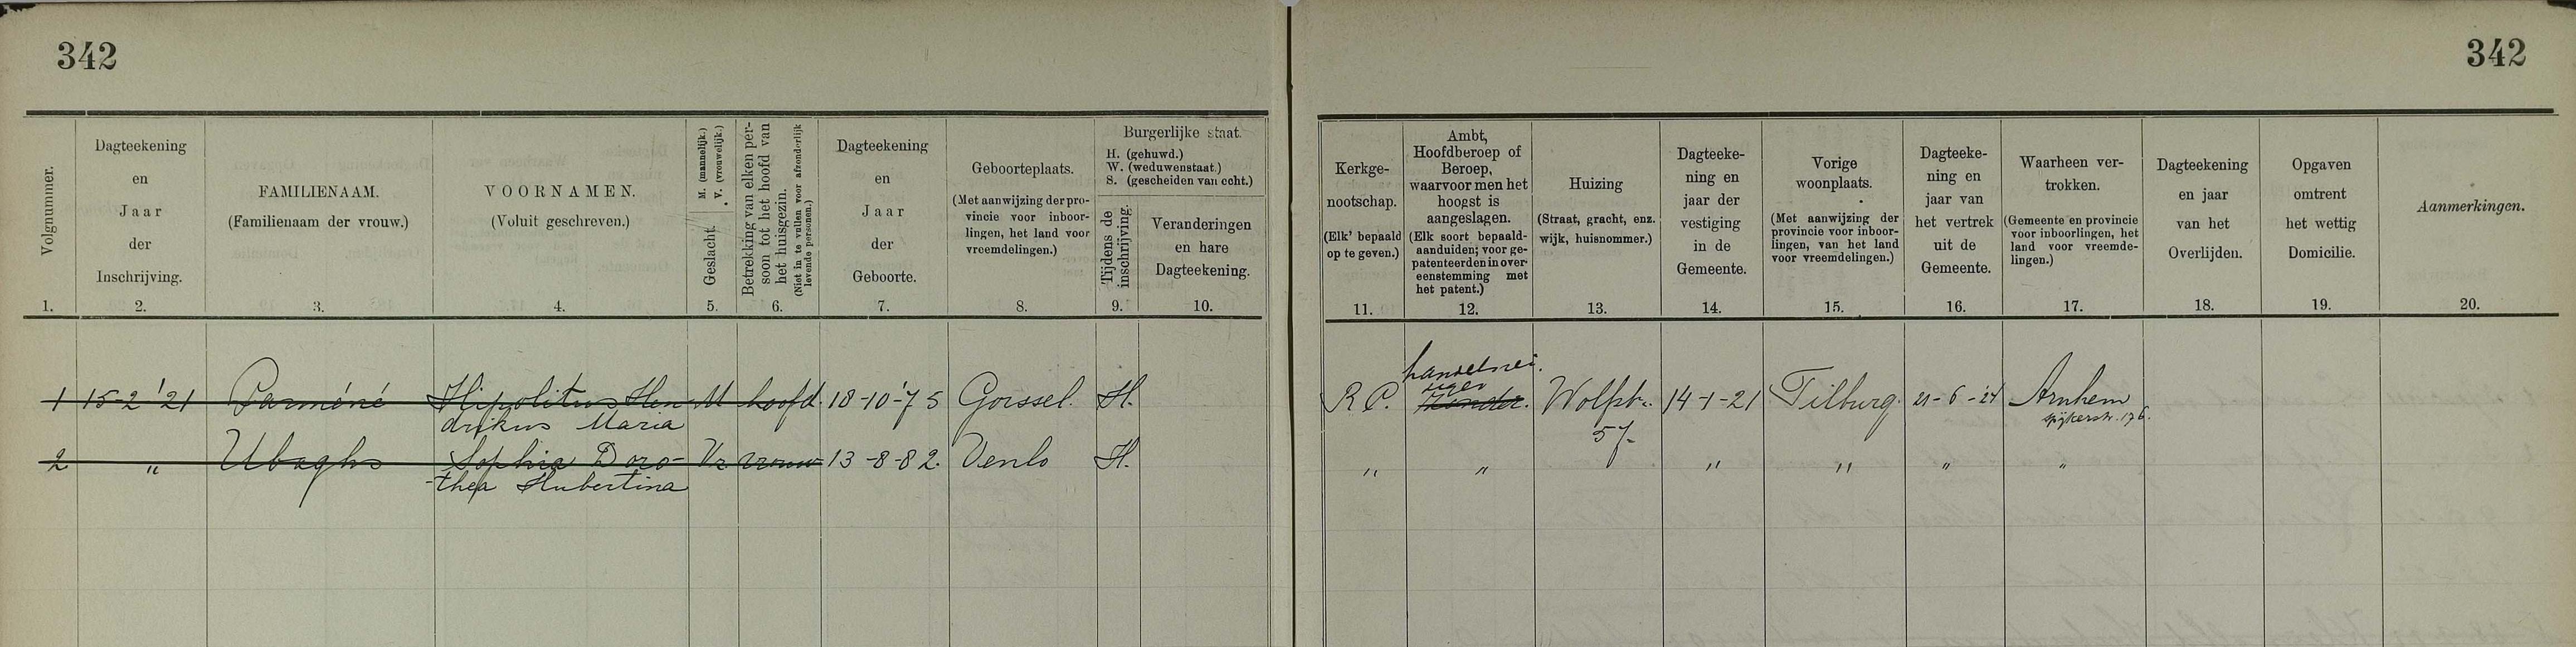 342
342
Volgnummer.
1.
Dagteekening
en
Jaar
der
Inschrijving.
2.
FAMILIENAAM.
(Familienaam der vrouw.)
3.
VOORNAMEN.
(Voluit geschreven.)
4.
Geslacht. M. (mannelijk.)
V. (vrouwelijk.)
5.
Betrekking van elken per-
soon tot het hoofd van
het huisgezin.
(Niet in te vullen voor afzonderlijk
levende personen.)
6.
Dagteekening
en
Jaar
der
Geboorte.
7.
Geboorteplaats.
(Met aanwijzing der pro-
vincie voor inboor-
lingen, het land voor
vreemdelingen.)
8.
Burgerlijke staat.
H. (gehuwd.)
W. (weduwenstaat.)
S. (gescheiden van echt.)
Tijdens de
inschrijving.
9.
Veranderingen
en hare
Dagteekening.
10.
Kerkge-
nootschap.
(Elk' bepaald
op te geven.)
11.
Ambt,
Hoofdberoep of
Beroep,
waarvoor men het
hoogst is
aangeslagen.
(Elk soort bepaald-
aanduiden; voor ge-
patenteerden in over
eenstemming met
het patent.)
12.
Huizing
(Straat, gracht, enz.
wijk, huisnommer.)
13.
Dagteeke-
ning en
jaar der
vestiging
in de
Gemeente.
14.
Vorige
woonplaats.
(Met aanwijzing der
provincie voor inboor-
lingen, van het land
voor vreemdelingen.)
15.
Dagteeke-
ning en
jaar van
het vertrek
uit de
Gemeente.
16.
Waarheen ver-
trokken.
(Gemeente en provincie
voor inboorlingen, het
land voor vreemde-
lingen.)
17.
Dagteekening
en jaar
van het
Overlijden.
18.
Opgaven
omtrent
het wettig
Domicilie.
19.
Aanmerkingen.
20.
1 15-2'21 Parméné Hipolitus Hen M hoofd. 18-10-'75 Gorssel. H.
drikus Maria
handelsrei.
ziger
R C. Wolfstr. 14-1-21 Tilburg. 21-6-'24 Arnhem
57. Spijkerstr. 176.
2 " Ubaghs Sophia Doro- Vr vrouw 13-8-82. Venlo H. " " " " " "
-thea Hubertina